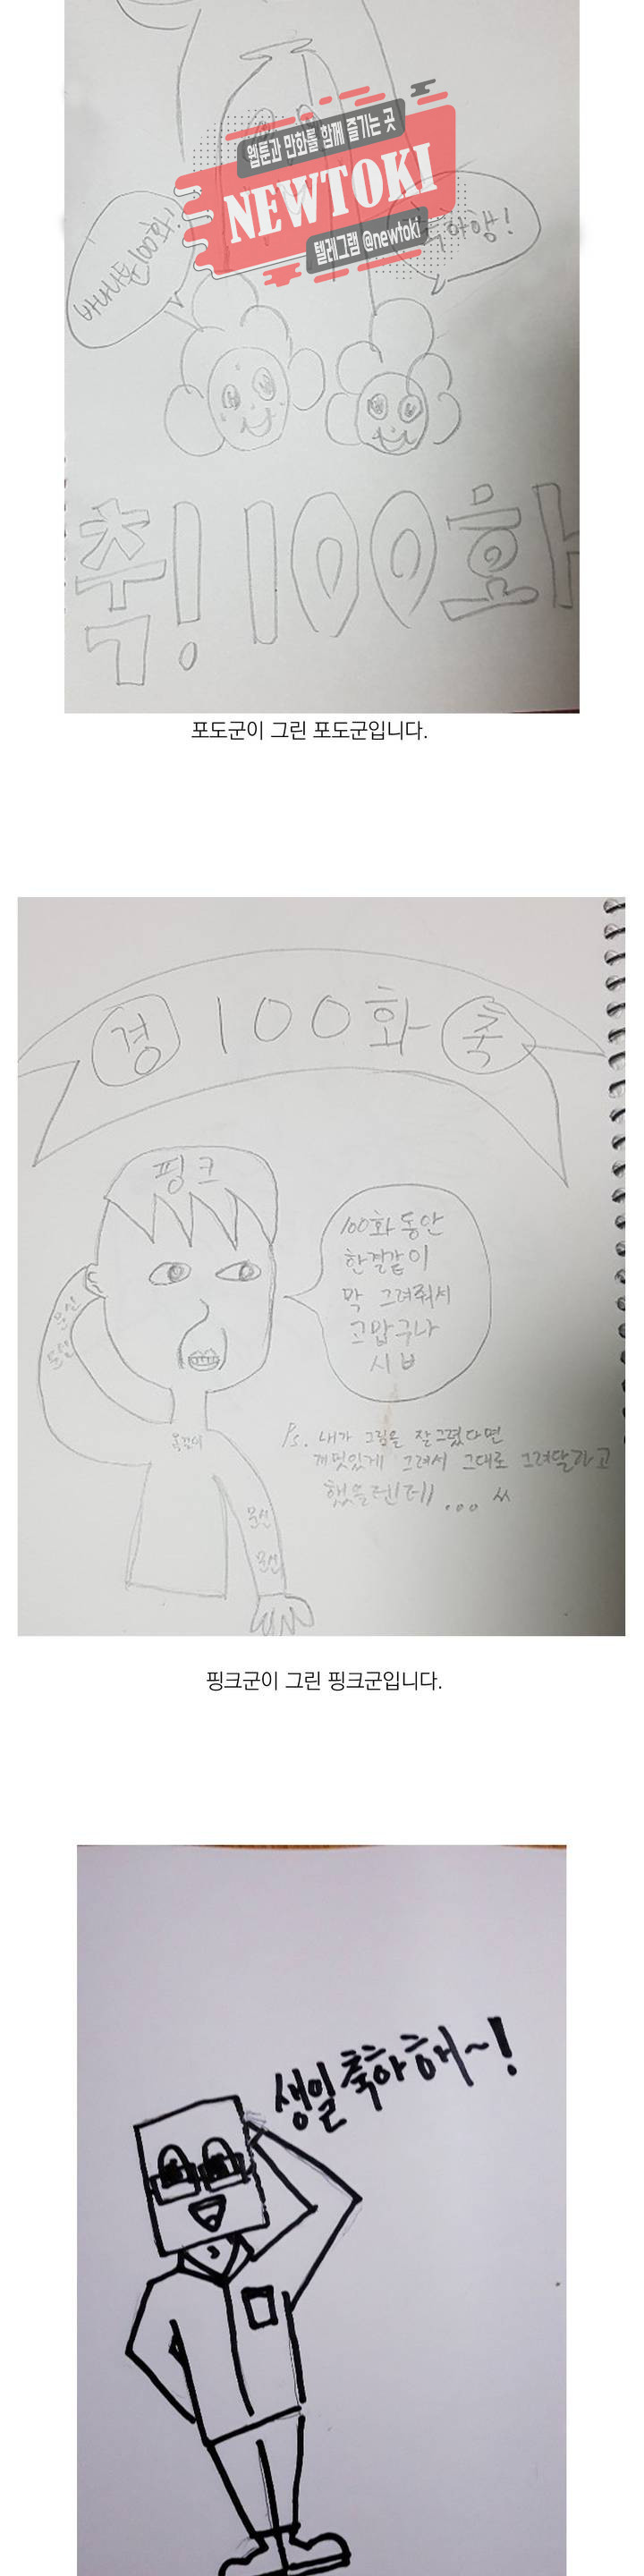 웹툰과 만화를 함께 즐기는 곳
NEWTOKI
텔레그램 @newtoki
바나나툰 100화!
축하행!
축! 100화
포도군이 그린 포도군입니다.
경 100화 축
핑크
100화 동안
한결같이
막 그려줘서
고맙구나
시 ㅂ
문신
문신
Ps. 내가 그림을 잘 그렸다면
개멋있게 그려서 그대로 그려달라고
했을텐데...
문신
문신
핑크군이 그린 핑크군입니다.
생일 축하해~!